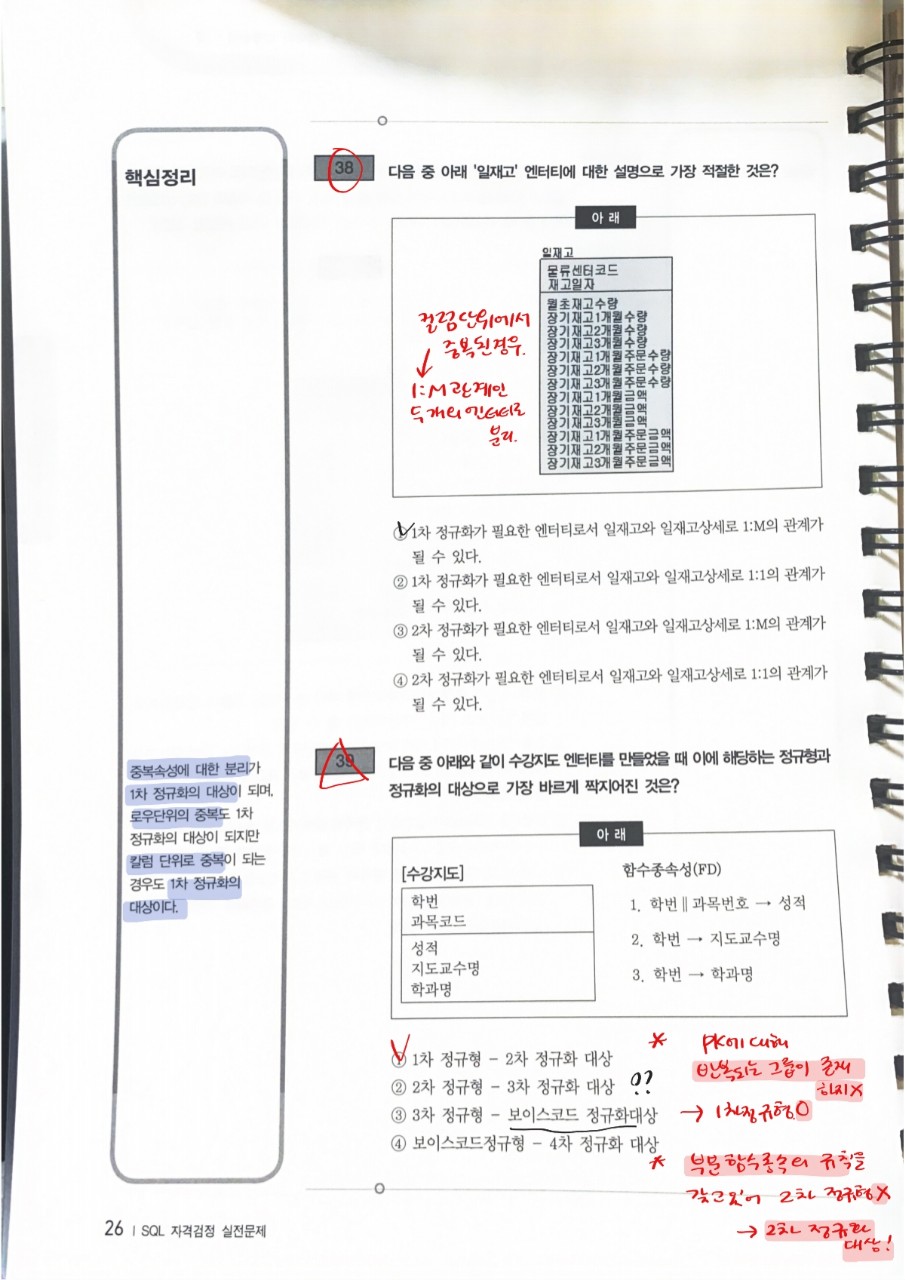 핵심정리
38 다음 중 아래 '일재고' 엔터티에 대한 설명으로 가장 적절한 것은?
아 래
일재고
물류센터코드
재고일자
월초재고수량
장기재고1개월수량
장기재고2개월수량
장기재고3개월수량
장기재고1개월주문수량
장기재고2개월주문수량
장기재고3개월주문수량
장기재고1개월금액
장기재고2개월금액
장기재고3개월금액
장기재고1개월주문금액
장기재고2개월주문금액
장기재고3개월주문금액
컬럼단위에서
중복된경우.
1:M 관계인
두개의 엔터티로
분리.
① 1차 정규화가 필요한 엔터티로서 일재고와 일재고상세로 1:M의 관계가
될 수 있다.
② 1차 정규화가 필요한 엔터티로서 일재고와 일재고상세로 1:1의 관계가
될 수 있다.
③ 2차 정규화가 필요한 엔터티로서 일재고와 일재고상세로 1:M의 관계가
될 수 있다.
④ 2차 정규화가 필요한 엔터티로서 일재고와 일재고상세로 1:1의 관계가
될 수 있다.
중복속성에 대한 분리가
1차 정규화의 대상이 되며,
로우단위의 중복도 1차
정규화의 대상이 되지만
칼럼 단위로 중복이 되는
경우도 1차 정규화의
대상이다.
39 다음 중 아래와 같이 수강지도 엔터티를 만들었을 때 이에 해당하는 정규형과
정규화의 대상으로 가장 바르게 짝지어진 것은?
아 래
[수강지도]
학번
과목코드
성적
지도교수명
학과명
함수종속성(FD)
1. 학번 || 과목번호 → 성적
2. 학번 → 지도교수명
3. 학번 → 학과명
① 1차 정규형 - 2차 정규화 대상
② 2차 정규형 - 3차 정규화 대상 ??
③ 3차 정규형 - 보이스코드 정규화대상
④ 보이스코드정규형 - 4차 정규화 대상
* PK에 대해
반복되는 그룹이 존재
하지X
→ 1차정규형O
* 부분함수종속의 규칙을
갖고있어 2차 정규형X
→ 2차 정규화
대상!
26 | SQL 자격검정 실전문제